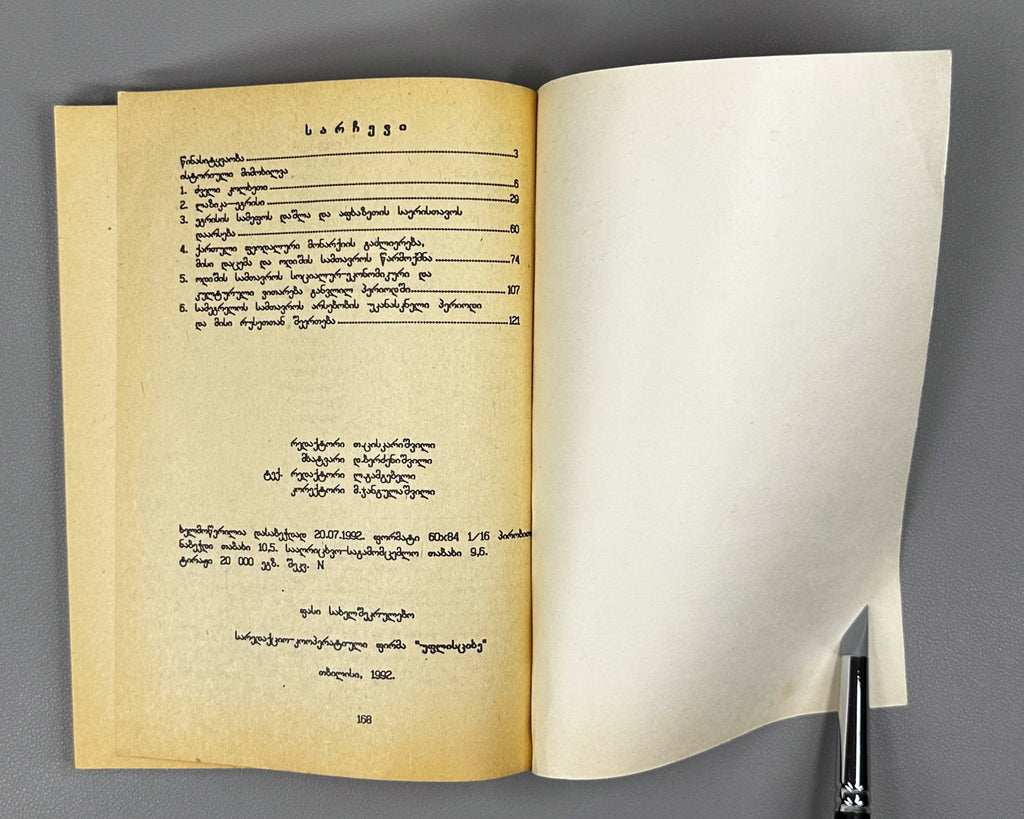 სარჩევი
წინასიტყვაობა 3
ისტორიული მიმოხილვა
1. ძველი კოლხეთი 6
2. ლაზიკა—ეგრისი 29
3. ეგრისის სამეფოს დაშლა და აფხაზეთის საერისთავოს
დაარსება 60
4. ქართული ფეოდალური მონარქიის გაძლიერება,
მისი დაცემა და ოდიშის სამთავროს წარმოქმნა 74
5. ოდიშის სამთავროს სოციალურ-ეკონომიკური და
კულტურული ვითარება განვლილ პერიოდში 107
6. სამეგრელოს სამთავროს არსებობის უკანასკნელი პერიოდი
და მისი რუსეთთან შეერთება 121
რედაქტორი თ.ცისკარიშვილი
მხატვარი დ.ბერძენიშვილი
ტექ. რედაქტორი ლ.გამგებელი
კორექტორი მ.ჯანგულაშვილი
ხელმოწერილია დასაბეჭდად 20.07.1992. ფორმატი 60x84 1/16 პირობით
ნაბეჭდი თაბახი 10,5. სააღრიცხვო-საგამომცემლო თაბახი 9,6.
ტირაჟი 20 000 ეგზ. შეკვ. N
ფასი სახელშეკრულებო
სარედაქციო-კოოპერატიული ფირმა "უფლისციხე"
თბილისი, 1992.
168